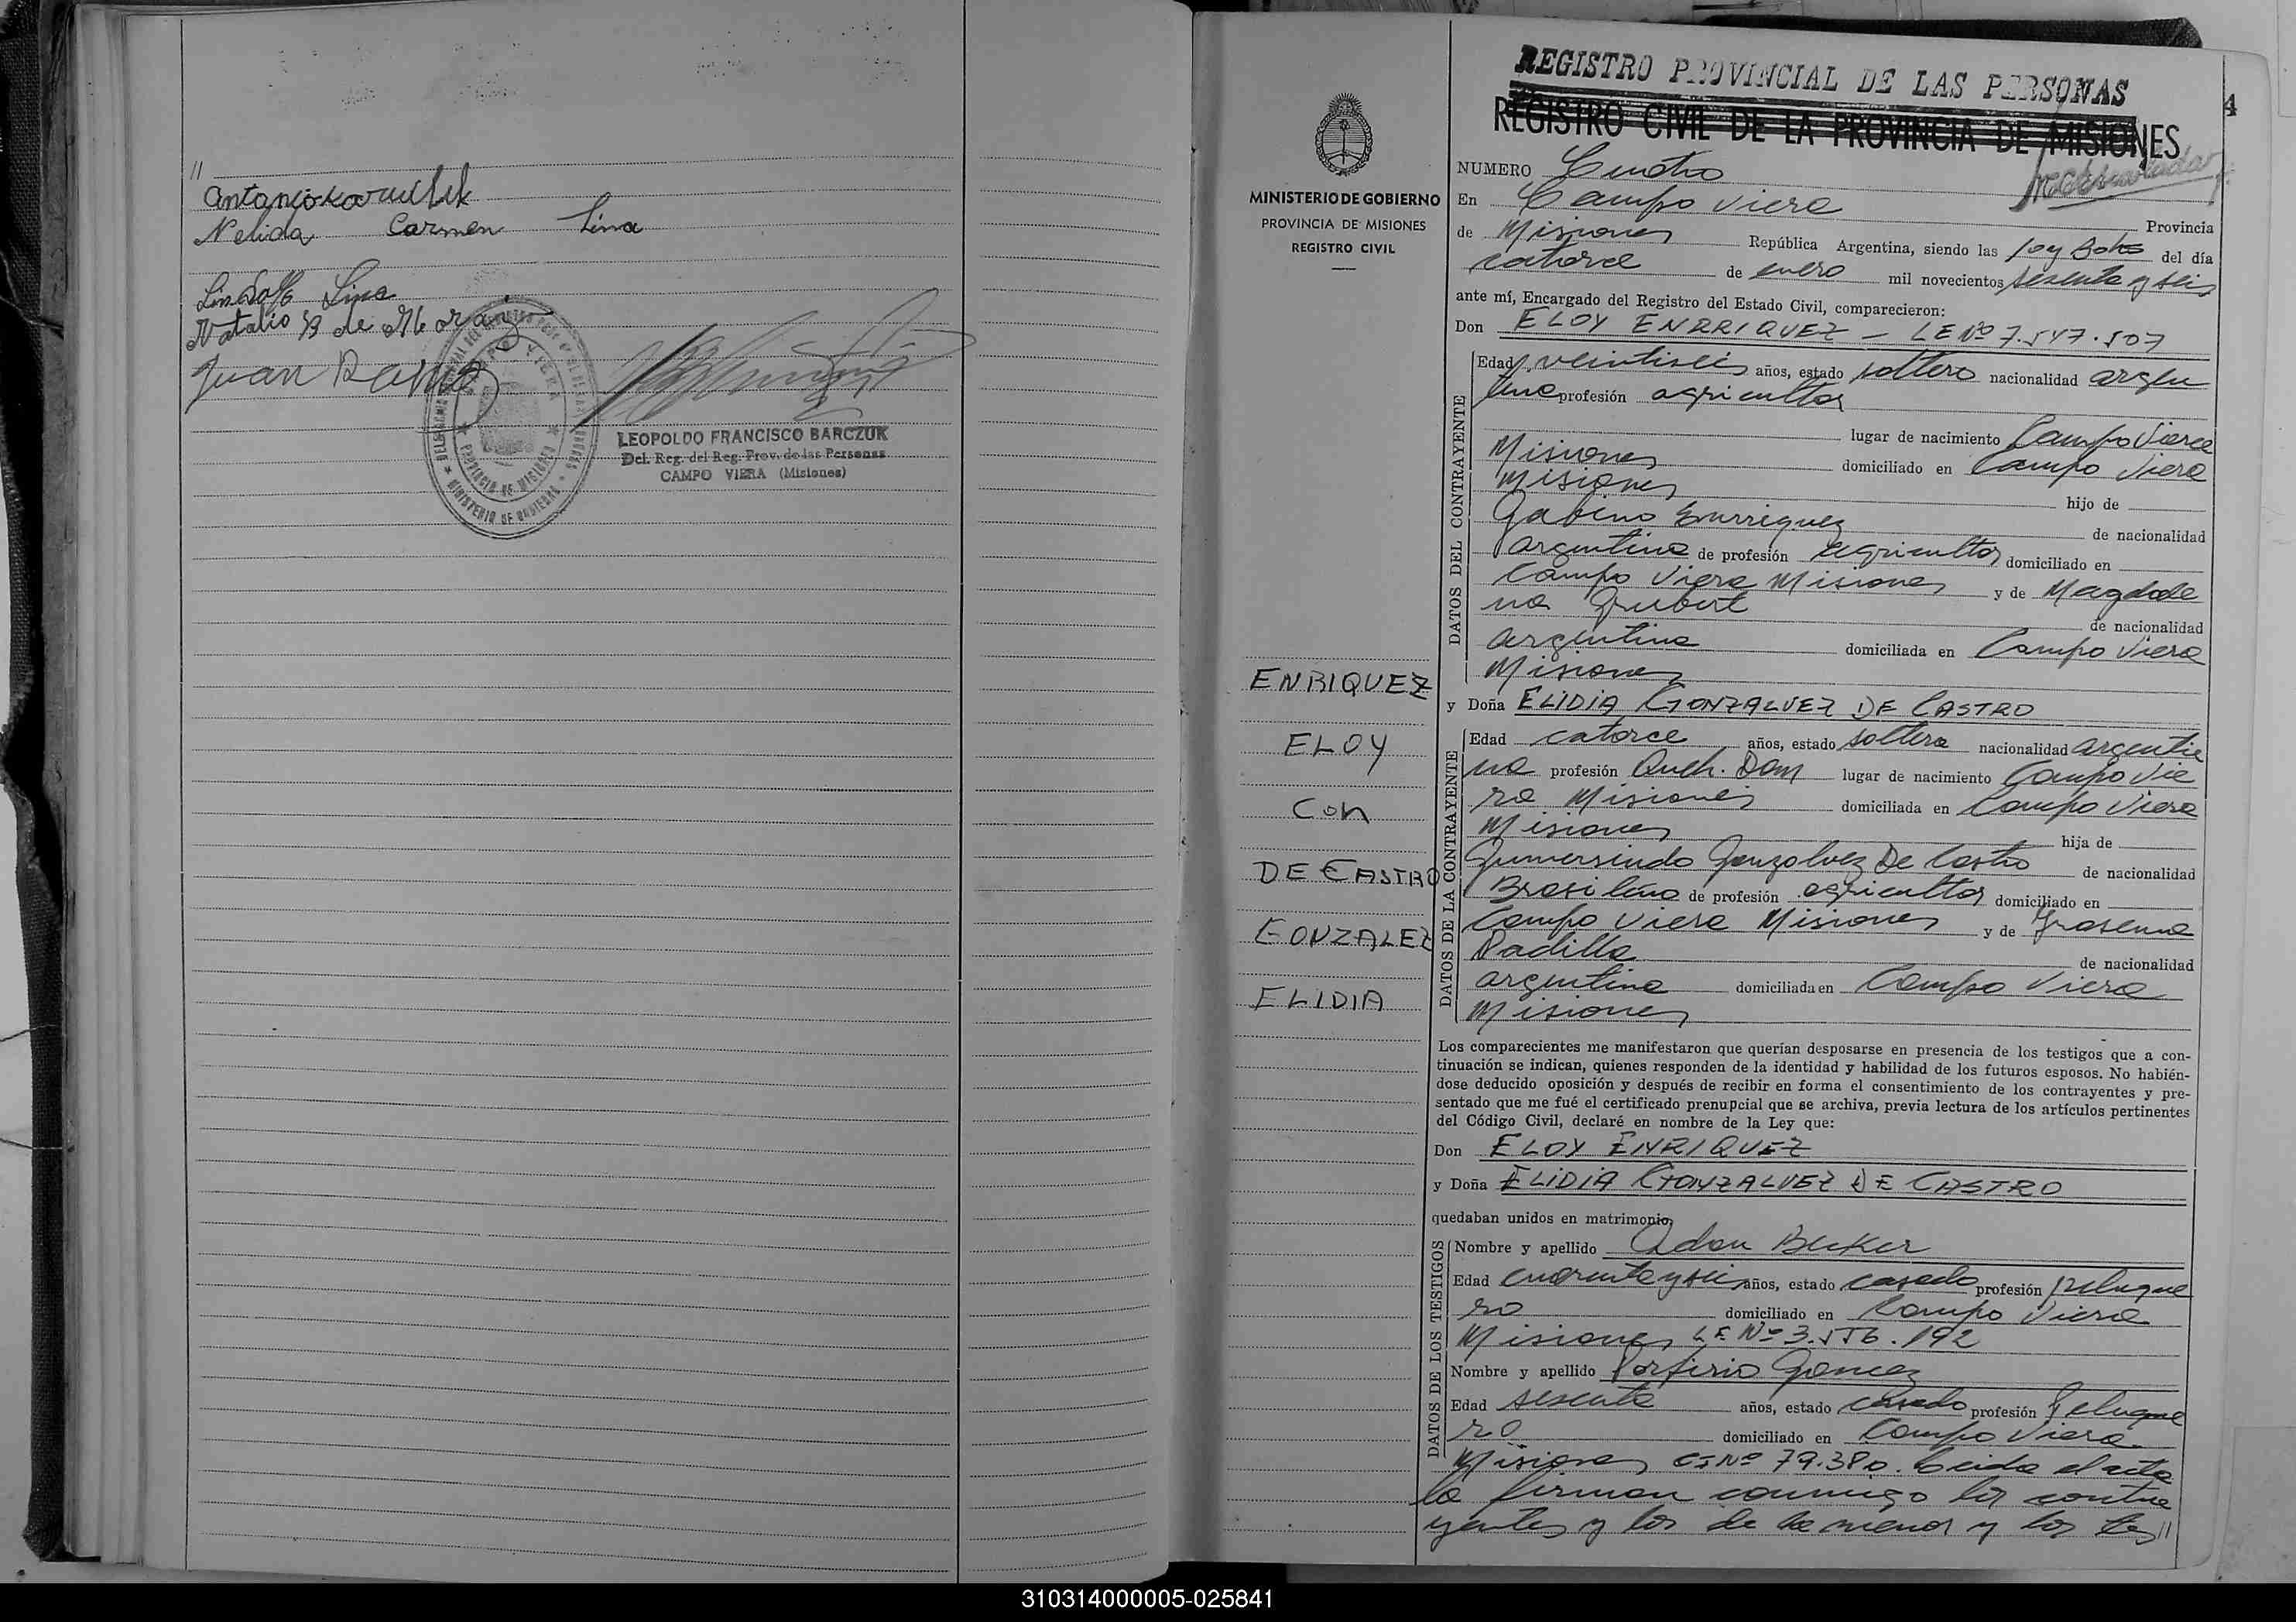 //
Antonio
Nelida Carmen Lima
Lindolfo Lima
Natalio B de Moraiz
Juan
LEOPOLDO FRANCISCO BARCZUK
Del. Reg. del Reg. Prov. de las Personas
CAMPO VIERA (Misiones)
PROVINCIA DE MISIONES
MINISTERIO DE GOBIERNO
REGISTRO PROVINCIAL DE LAS PERSONAS
REGISTRO CIVIL DE LA PROVINCIA DE MISIONES
4
MINISTERIO DE GOBIERNO
PROVINCIA DE MISIONES
REGISTRO CIVIL
ENRIQUEZ
ELOY
CON
DE CASTRO
GONZALEZ
ELIDIA
NUMERO Cuatro
En Campo Viera
Provincia
de Misiones República Argentina, siendo las del día
catorce de enero mil novecientos sesenta y seis
ante mí, Encargado del Registro del Estado Civil, comparecieron:
Don ELOY ENRRIQUEZ – LE Nº 7.547.507
DATOS DEL CONTRAYENTE
Edad veintiseis años, estado soltero nacionalidad argen
tina profesión agricultor
lugar de nacimiento Campo Viera
Misiones domiciliado en Campo Viera
Misiones hijo de
Gabino Enrriquez de nacionalidad
argentina de profesión agricultor domiciliado en
Campo Viera Misiones y de Magdale
na Grubert de nacionalidad
argentina domiciliada en Campo Viera
Misiones
y Doña ELIDIA GONZALVEZ DE CASTRO
DATOS DE LA CONTRAYENTE
Edad catorce años, estado soltera nacionalidad argenti
na profesión Queh. Dom lugar de nacimiento Campo Vie
ra Misiones domiciliada en Campo Viera
Misiones hija de
Gumersindo Gonzalvez De Castro de nacionalidad
Brasileña de profesión agricultor domiciliado en
Campo Viera Misiones y de
Padilla de nacionalidad
argentina domiciliada en Campo Viera
Misiones
Los comparecientes me manifestaron que querían desposarse en presencia de los testigos que a con-
tinuación se indican, quienes responden de la identidad y habilidad de los futuros esposos. No habién-
dose deducido oposición y después de recibir en forma el consentimiento de los contrayentes y pre-
sentado que me fué el certificado prenupcial que se archiva, previa lectura de los artículos pertinentes
del Código Civil, declaré en nombre de la Ley que:
Don ELOY ENRIQUEZ
y Doña ELIDIA GONZALVEZ DE CASTRO
quedaban unidos en matrimonio
DATOS DE LOS TESTIGOS
Nombre y apellido Adan Beker
Edad cuarenta y seis años, estado casado profesión peluque
ro domiciliado en Campo Viera
Misiones LE Nº 3.556.192
Nombre y apellido Porfirio Gomez
Edad sesenta años, estado casado profesión Peluque
ro domiciliado en Campo Viera
Misiones CI Nº 79.380. Leida el acta
la firman conmigo los contra
yentes y los de la menor y los tes//
310314000005-025841